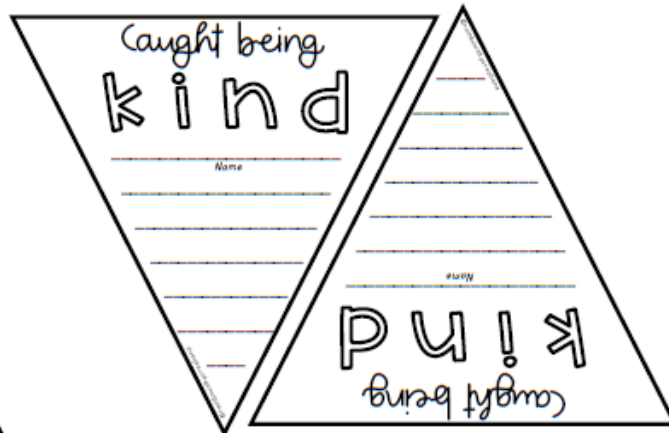 Caught being
kind
Name
Caught being
kind
Name